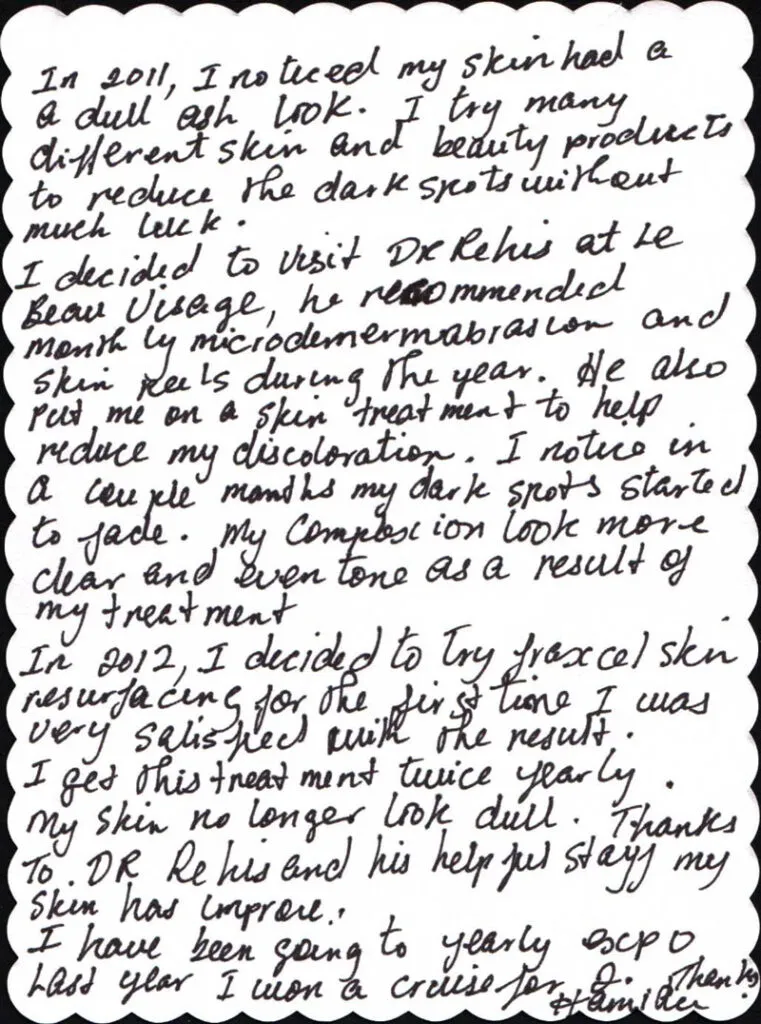 In 2011, I noticed my skin had a
a dull ash look. I try many
different skin and beauty products
to reduce the dark spots without
much luck.
I decided to visit DR Rehis at Le
Beau Visage, he recommended
monthly microdermermabrasion and
skin peels during the year. He also
put me on a skin treatment to help
reduce my discoloration. I notice in
a couple months my dark spots started
to fade. My Complexion look more
clear and even tone as a result of
my treatment
In 2012, I decided to try fraxcel skin
resurfacing for the first time I was
very satisfied with the result.
I get this treatment twice yearly.
My skin no longer look dull. Thanks
To. DR Rehis and his helpful staff my
skin has improve.
I have been going to yearly expo
Last year I won a cruise for 2. Thanks